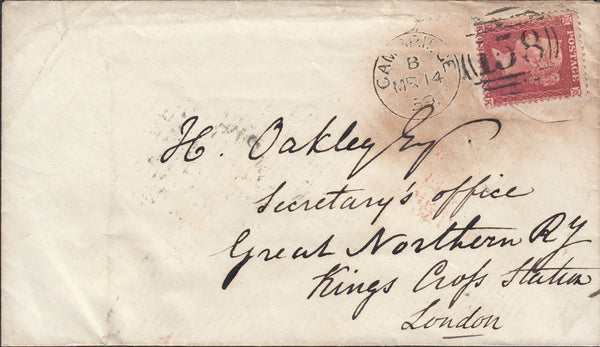 CAMBRIDGE
B
MR 14
59
158
POSTAGE
H. Oakley Esq
Secretary's office
Great Northern Ry
Kings Croſs Station
London